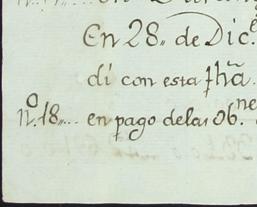 En 28,, de Dic.e
di con esta fha
no. 18,,... en pago delas 06.nes